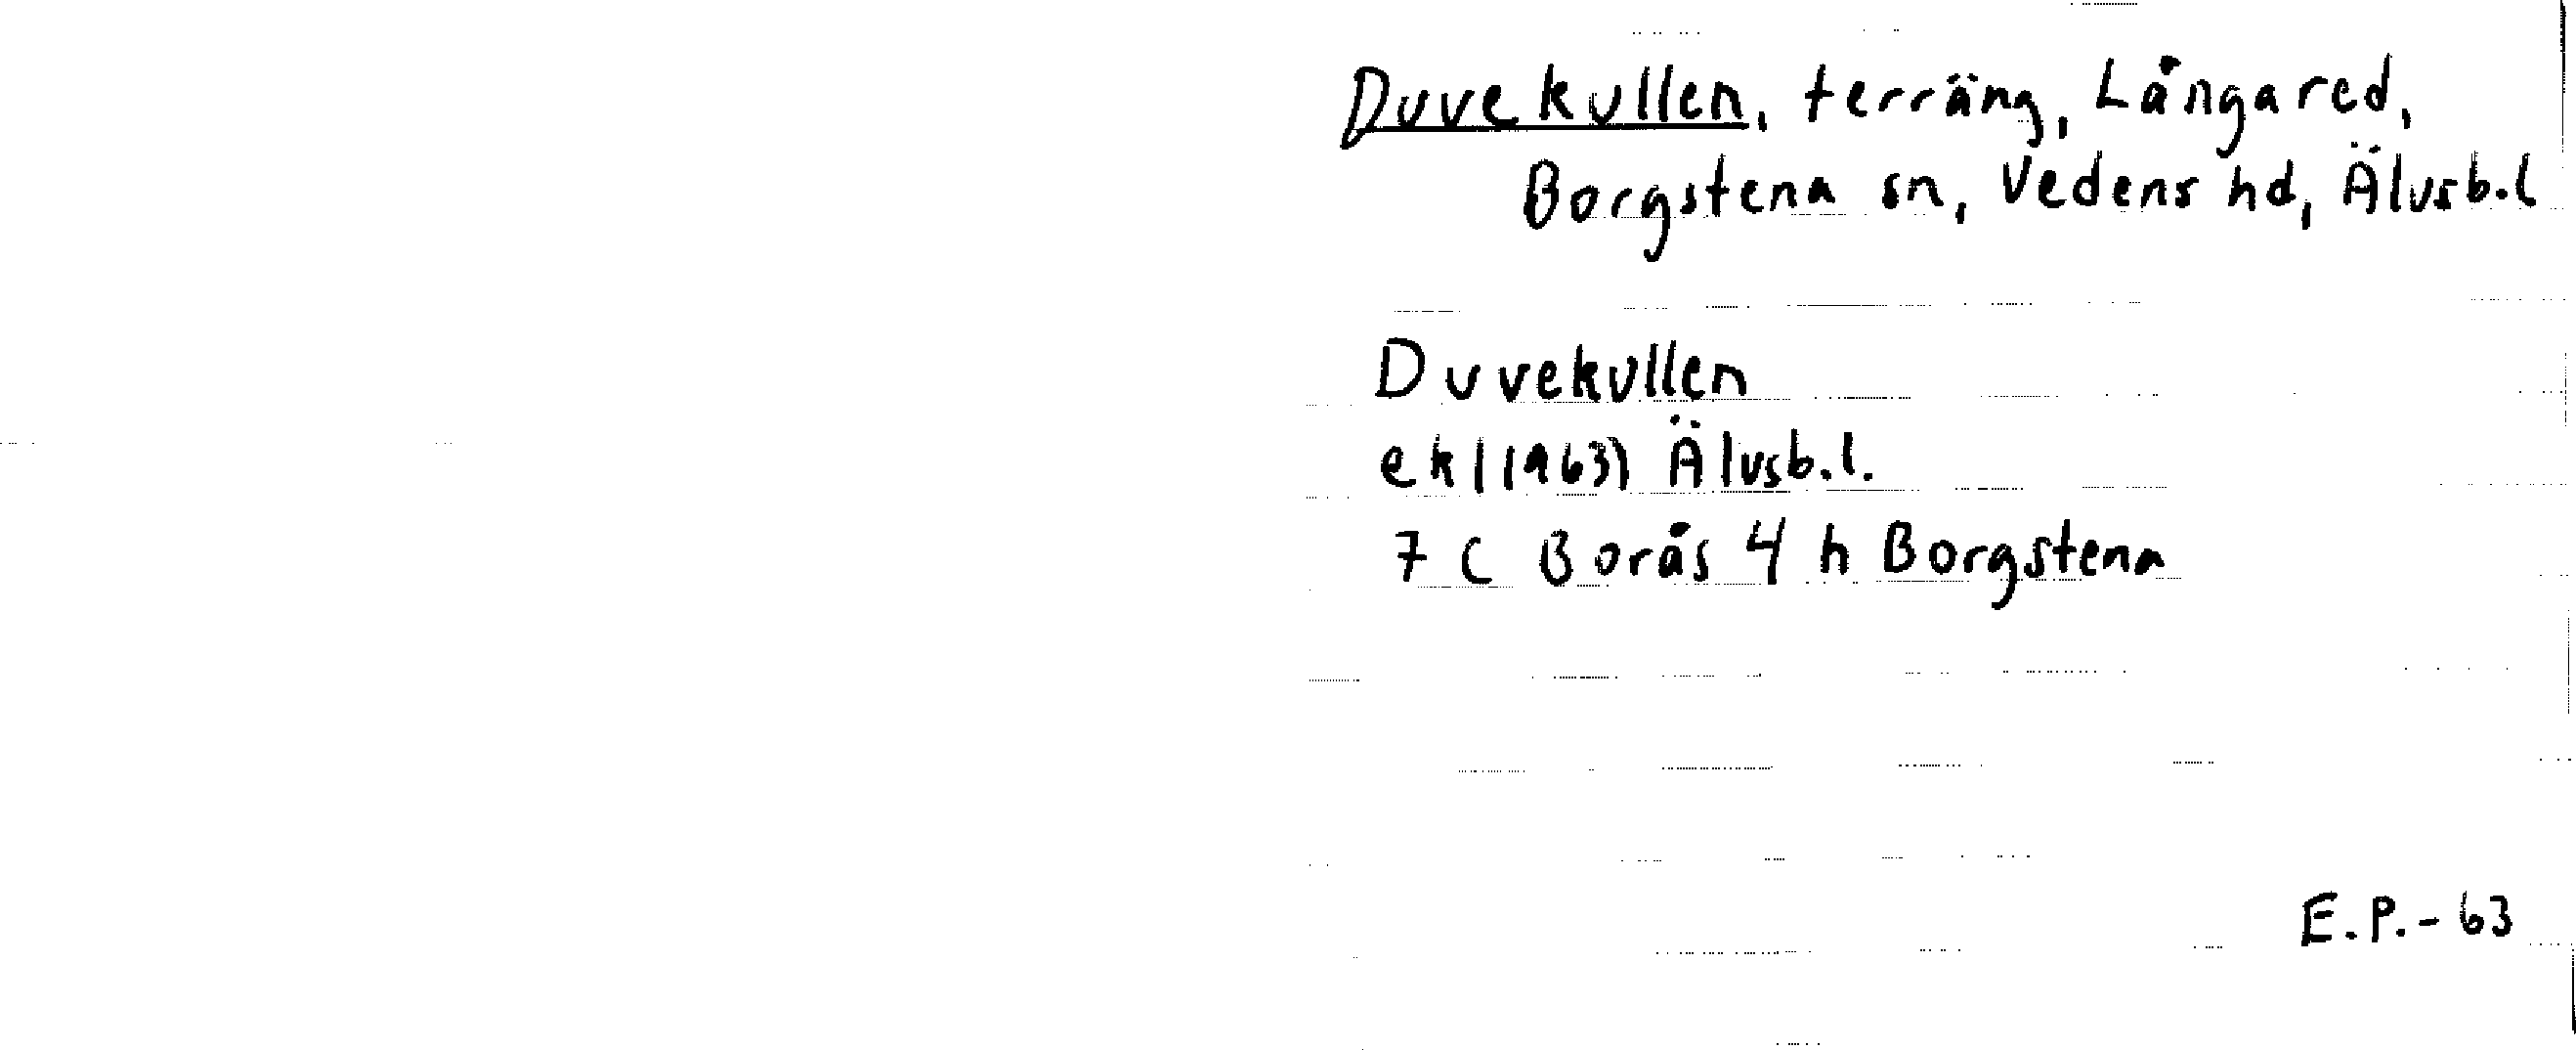 Duvekullen, terräng, Långared,
Borgstena sn, Vedens hd, Älvsb.l
Duvekullen
ek l (1963) Älvsb.l.
7 C Borås 4 h Borgstena
E.P.-63